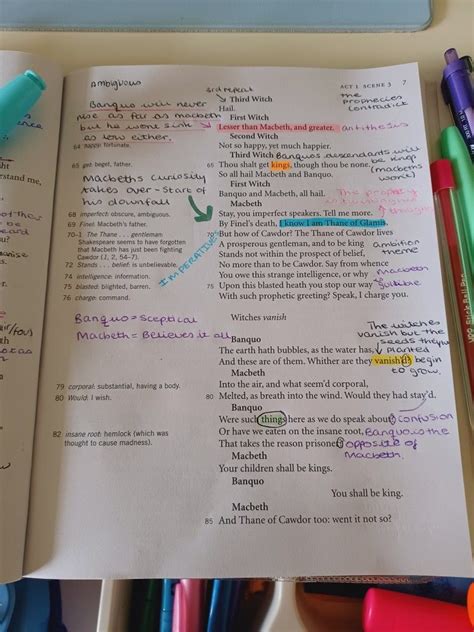 ambiguous
3rd repeat
ACT 1 SCENE 3 7
Third Witch
the prophecies contradick
Hail.
Banquo will never
rise as far as macbeth
but he wont sink
as low either.
First Witch
Lesser than Macbeth, and greater.
antithesis
Second Witch
64 happy: fortunate.
Not so happy, yet much happier.
Third Witch
Banquos descendants will be king
(macbeths wont)
65 get: beget, father.
65 Thou shall get kings, though thou be none.
So all hail Macbeth and Banquo.
First Witch
Banquo and Macbeth, all hail.
Macbeths curiosity
takes over - start of
his downfall
Macbeth
68 imperfect: obscure, ambiguous.
Stay, you imperfect speakers. Tell me more.
69 Finel: Macbeth's father.
By Finel's death, I know I am Thane of Glamis,
70-1 The Thane . . . gentleman:
70 But how of Cawdor? The Thane of Cawdor lives
Shakespeare seems to have forgotten
that Macbeth has just been fighting
Cawdor (1, 2, 54–7).
IMPERATIVE
A prosperous gentleman, and to be king
ambition
theme
72 Stands . . . belief: is unbelievable.
Stands not within the prospect of belief,
No more than to be Cawdor. Say from whence
74 intelligence: information.
You owe this strange intelligence, or why
macbeth
75 blasted: blighted, barren.
75 Upon this blasted heath you stop our way
76 charge: command.
With such prophetic greeting? Speak, I charge you.
Witches vanish
Banquo = sceptical
Macbeth = Believes it all
The witches
vanish but the
seeds they
planted
begin
to grow.
Banquo
The earth hath bubbles, as the water has,
And these are of them. Whither are they vanish'd?
Macbeth
79 corporal: substantial, having a body.
Into the air, and what seem'd corporal,
80 Would: I wish.
80 Melted, as breath into the wind. Would they had stay'd.
Banquo
Were such things here as we do speak about?
confusion
82 insane root: hemlock (which was
thought to cause madness).
Or have we eaten on the insane root,
Banquo is the
opposite of
Macbeth.
That takes the reason prisoner?
Macbeth
Your children shall be kings.
Banquo
You shall be king.
Macbeth
85 And Thane of Cawdor too: went it not so?